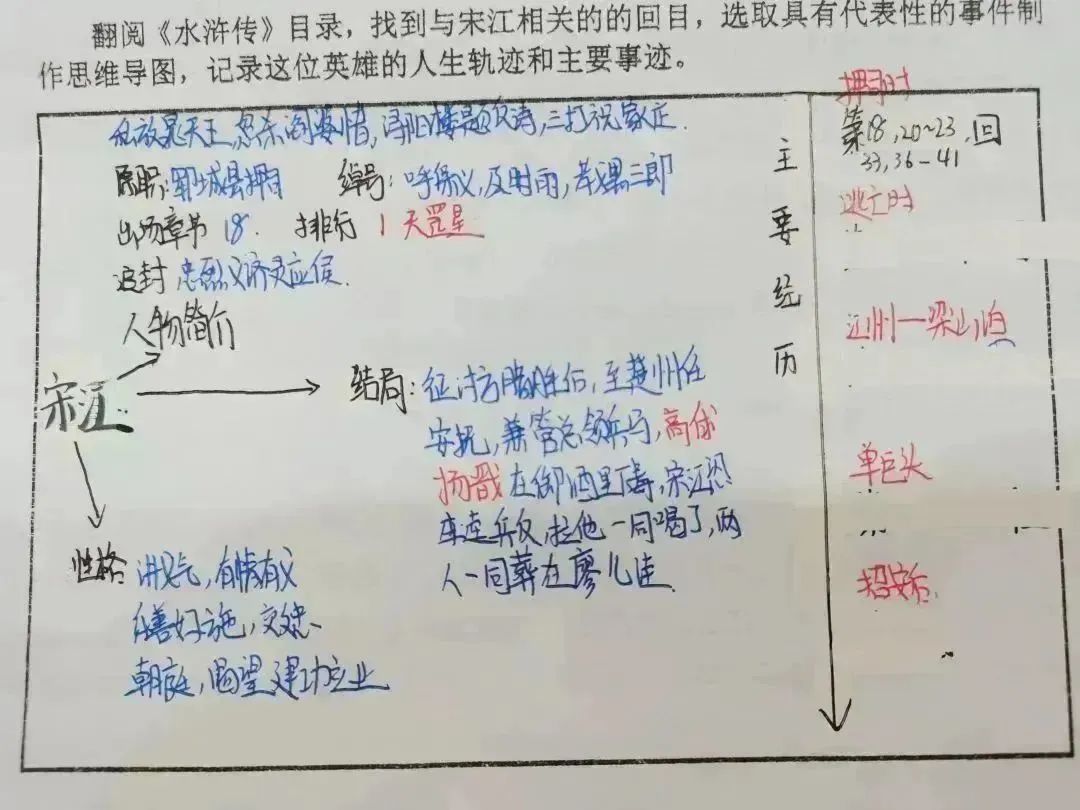 翻阅《水浒传》目录，找到与宋江相关的的回目，选取具有代表性的事件制
作思维导图，记录这位英雄的人生轨迹和主要事迹。
私放晁天王，怒杀阎婆惜，浔阳楼题反诗，三打祝家庄.
原职：郓城县押司 绰号：呼保义，及时雨，孝义黑三郎
出场章节 18. 排行 1 天罡星
追封 忠烈义济灵应侯.
人物简介
宋江:
结局：征讨方腊胜后，至楚州任
安抚，兼管总领兵马，高俅
杨戬在御酒里下毒，宋江恐
李逵兵反，拉他一同喝了，两
人一同葬在廖儿洼
性格：讲义气，有情有义
善好施，交忠
朝庭，渴望建功立业
主要经历
押司时
第18，20~23，回
33，36-41
逃亡时
江州—梁山泊
单巨头
招安后.